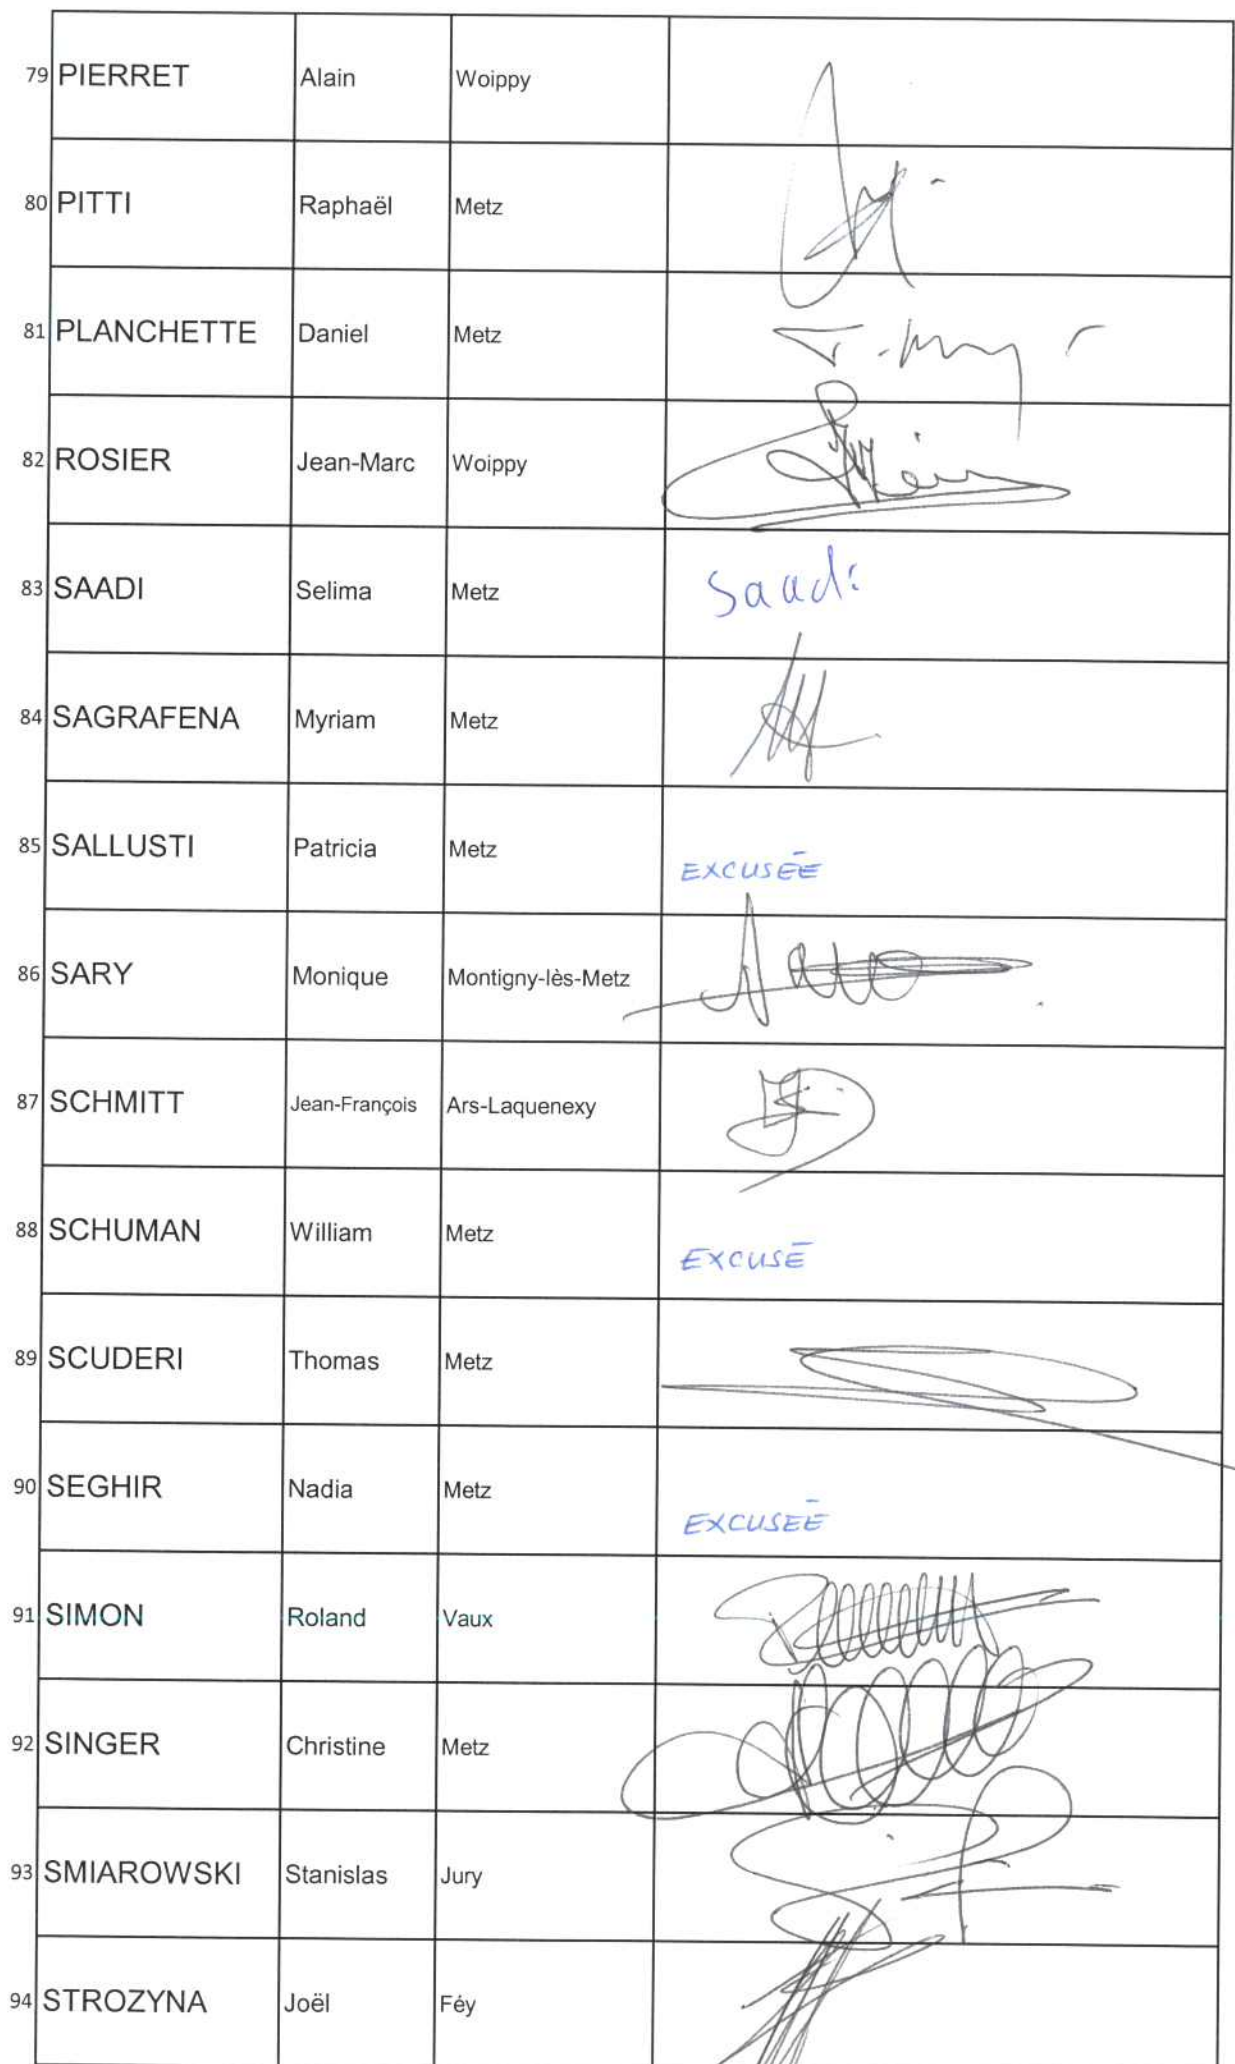 79 PIERRET Alain Woippy
80 PITTI Raphaël Metz
81 PLANCHETTE Daniel Metz
82 ROSIER Jean-Marc Woippy
83 SAADI Selima Metz Saadi
84 SAGRAFENA Myriam Metz
85 SALLUSTI Patricia Metz EXCUSÉE
86 SARY Monique Montigny-lès-Metz
87 SCHMITT Jean-François Ars-Laquenexy
88 SCHUMAN William Metz EXCUSÉ
89 SCUDERI Thomas Metz
90 SEGHIR Nadia Metz EXCUSEÉ
91 SIMON Roland Vaux
92 SINGER Christine Metz
93 SMIAROWSKI Stanislas Jury
94 STROZYNA Joël Féy